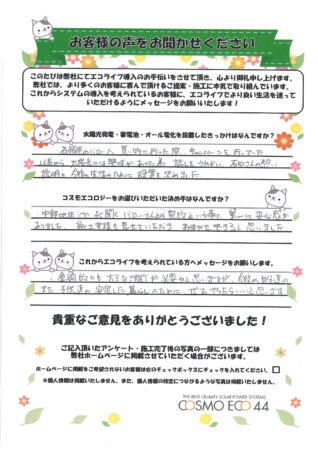 お客様の声をお聞かせください
このたびは弊社にてエコライフ導入のお手伝いをさせて頂き、心より御礼申し上げます。
弊社では、より多くのお客様に喜んで頂けるご提案・施工に本気で取り組んでいます。
これからシステムの導入を考えられているお客様に、エコライフでより良い生活を送って
いただけるようにメッセージをお願いいたします！
太陽光発電・蓄電池・オール電化を設置したきっかけはなんですか？
買い物に行った際、キャンペーンを行っていた
以前から太陽光には興味があった為 話をうかがい、
説明と 今後の生活のために 設置を決めました
コスモエコロジーをお選びいただいた決め手はなんですか？
安心感が
ありました。施工実績も見せていただき おまかせできると思いました
これからエコライフを考えられている方へメッセージをお願いします。
金額的にも 大きなご検討が必要かと思いますが、
また 子供達の安定した暮らしのために ぜひやったらいいと思います
貴重なご意見をありがとうございました！
ご記入頂いたアンケート・施工完了後の写真の一部につきましては
弊社ホームページに掲載させていただく場合がございます。
ホームページに掲載をご希望されないお客様は右のチェックボックスにチェックを入れてください。 □
※個人情報は掲載いたしません。また、個人情報の特定につながるような写真は掲載いたしません。
THE BEST QUALITY SOLAR POWER SYSTEMS
COSMO ECO 44